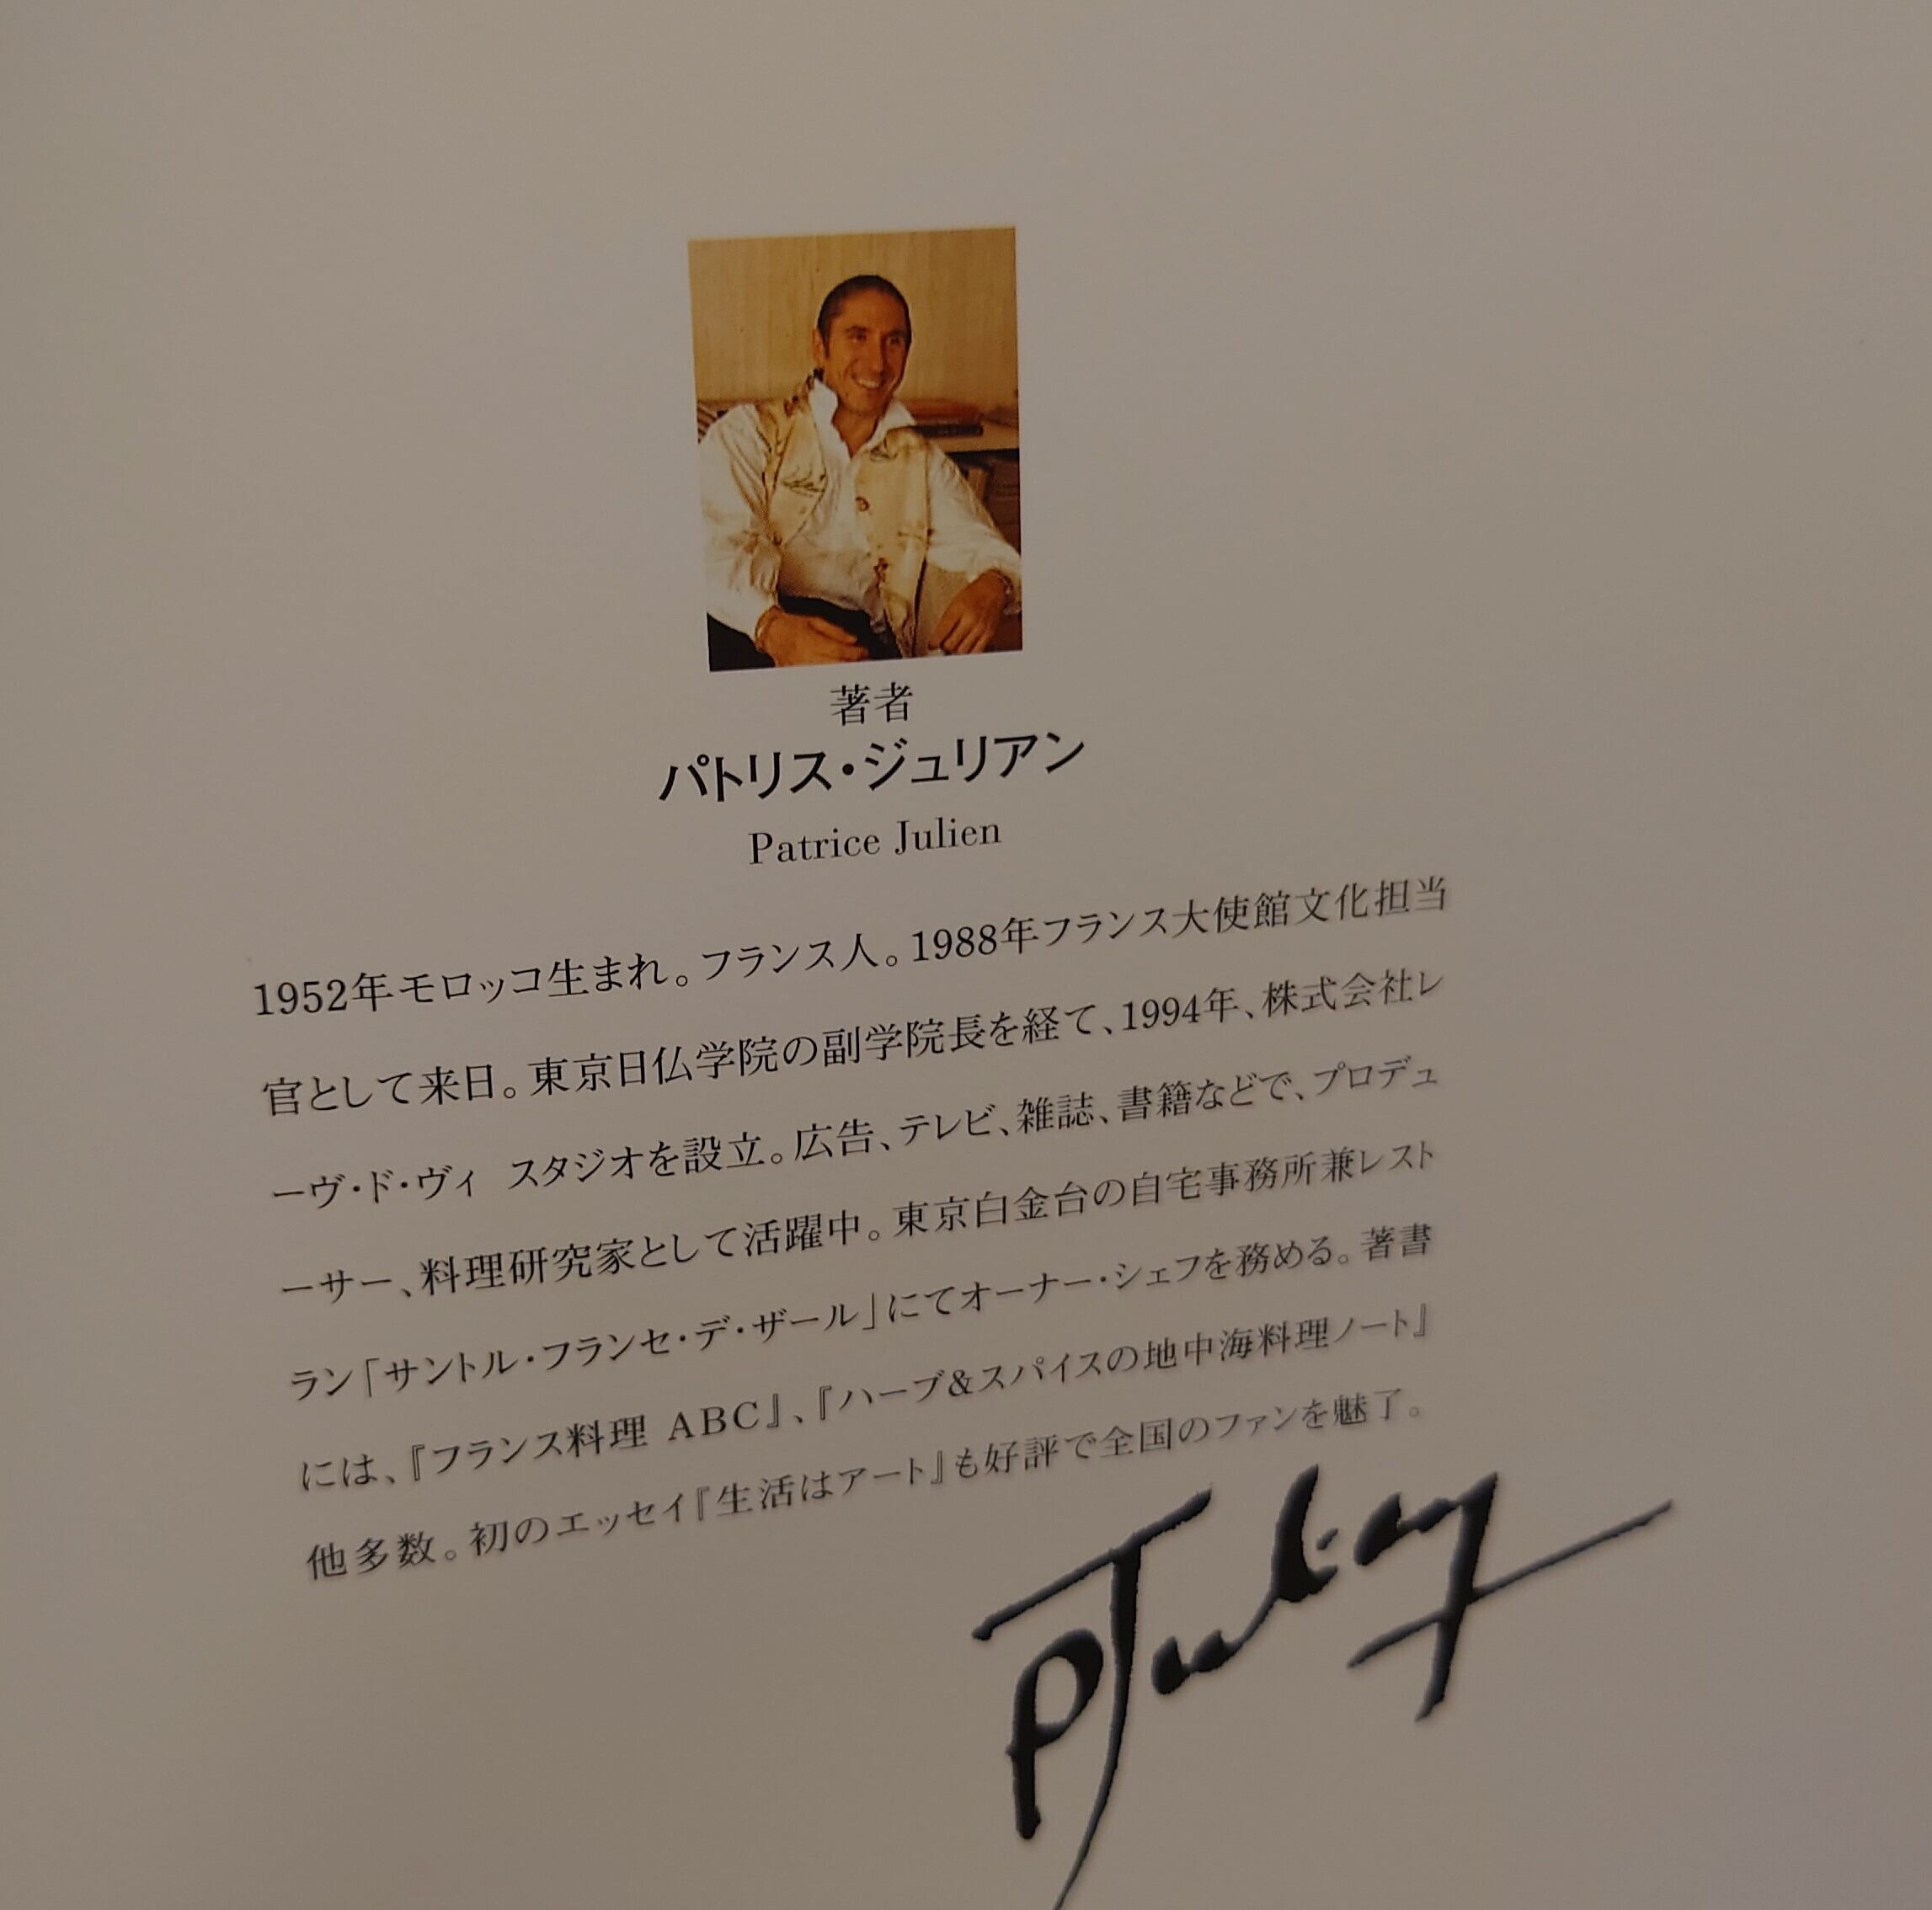 著者
パトリス・ジュリアン
Patrice Julien
1952年モロッコ生まれ。フランス人。1988年フランス大使館文化担当
官として来日。東京日仏学院の副学院長を経て、1994年、株式会社レ
ーヴ・ド・ヴィ スタジオを設立。広告、テレビ、雑誌、書籍などで、プロデュ
ーサー、料理研究家として活躍中。東京白金台の自宅事務所兼レスト
ラン「サントル・フランセ・デ・ザール」にてオーナー・シェフを務める。著書
には、『フランス料理 ABC』、『ハーブ&スパイスの地中海料理ノート』
他多数。初のエッセイ『生活はアート』も好評で全国のファンを魅了。
PJulien